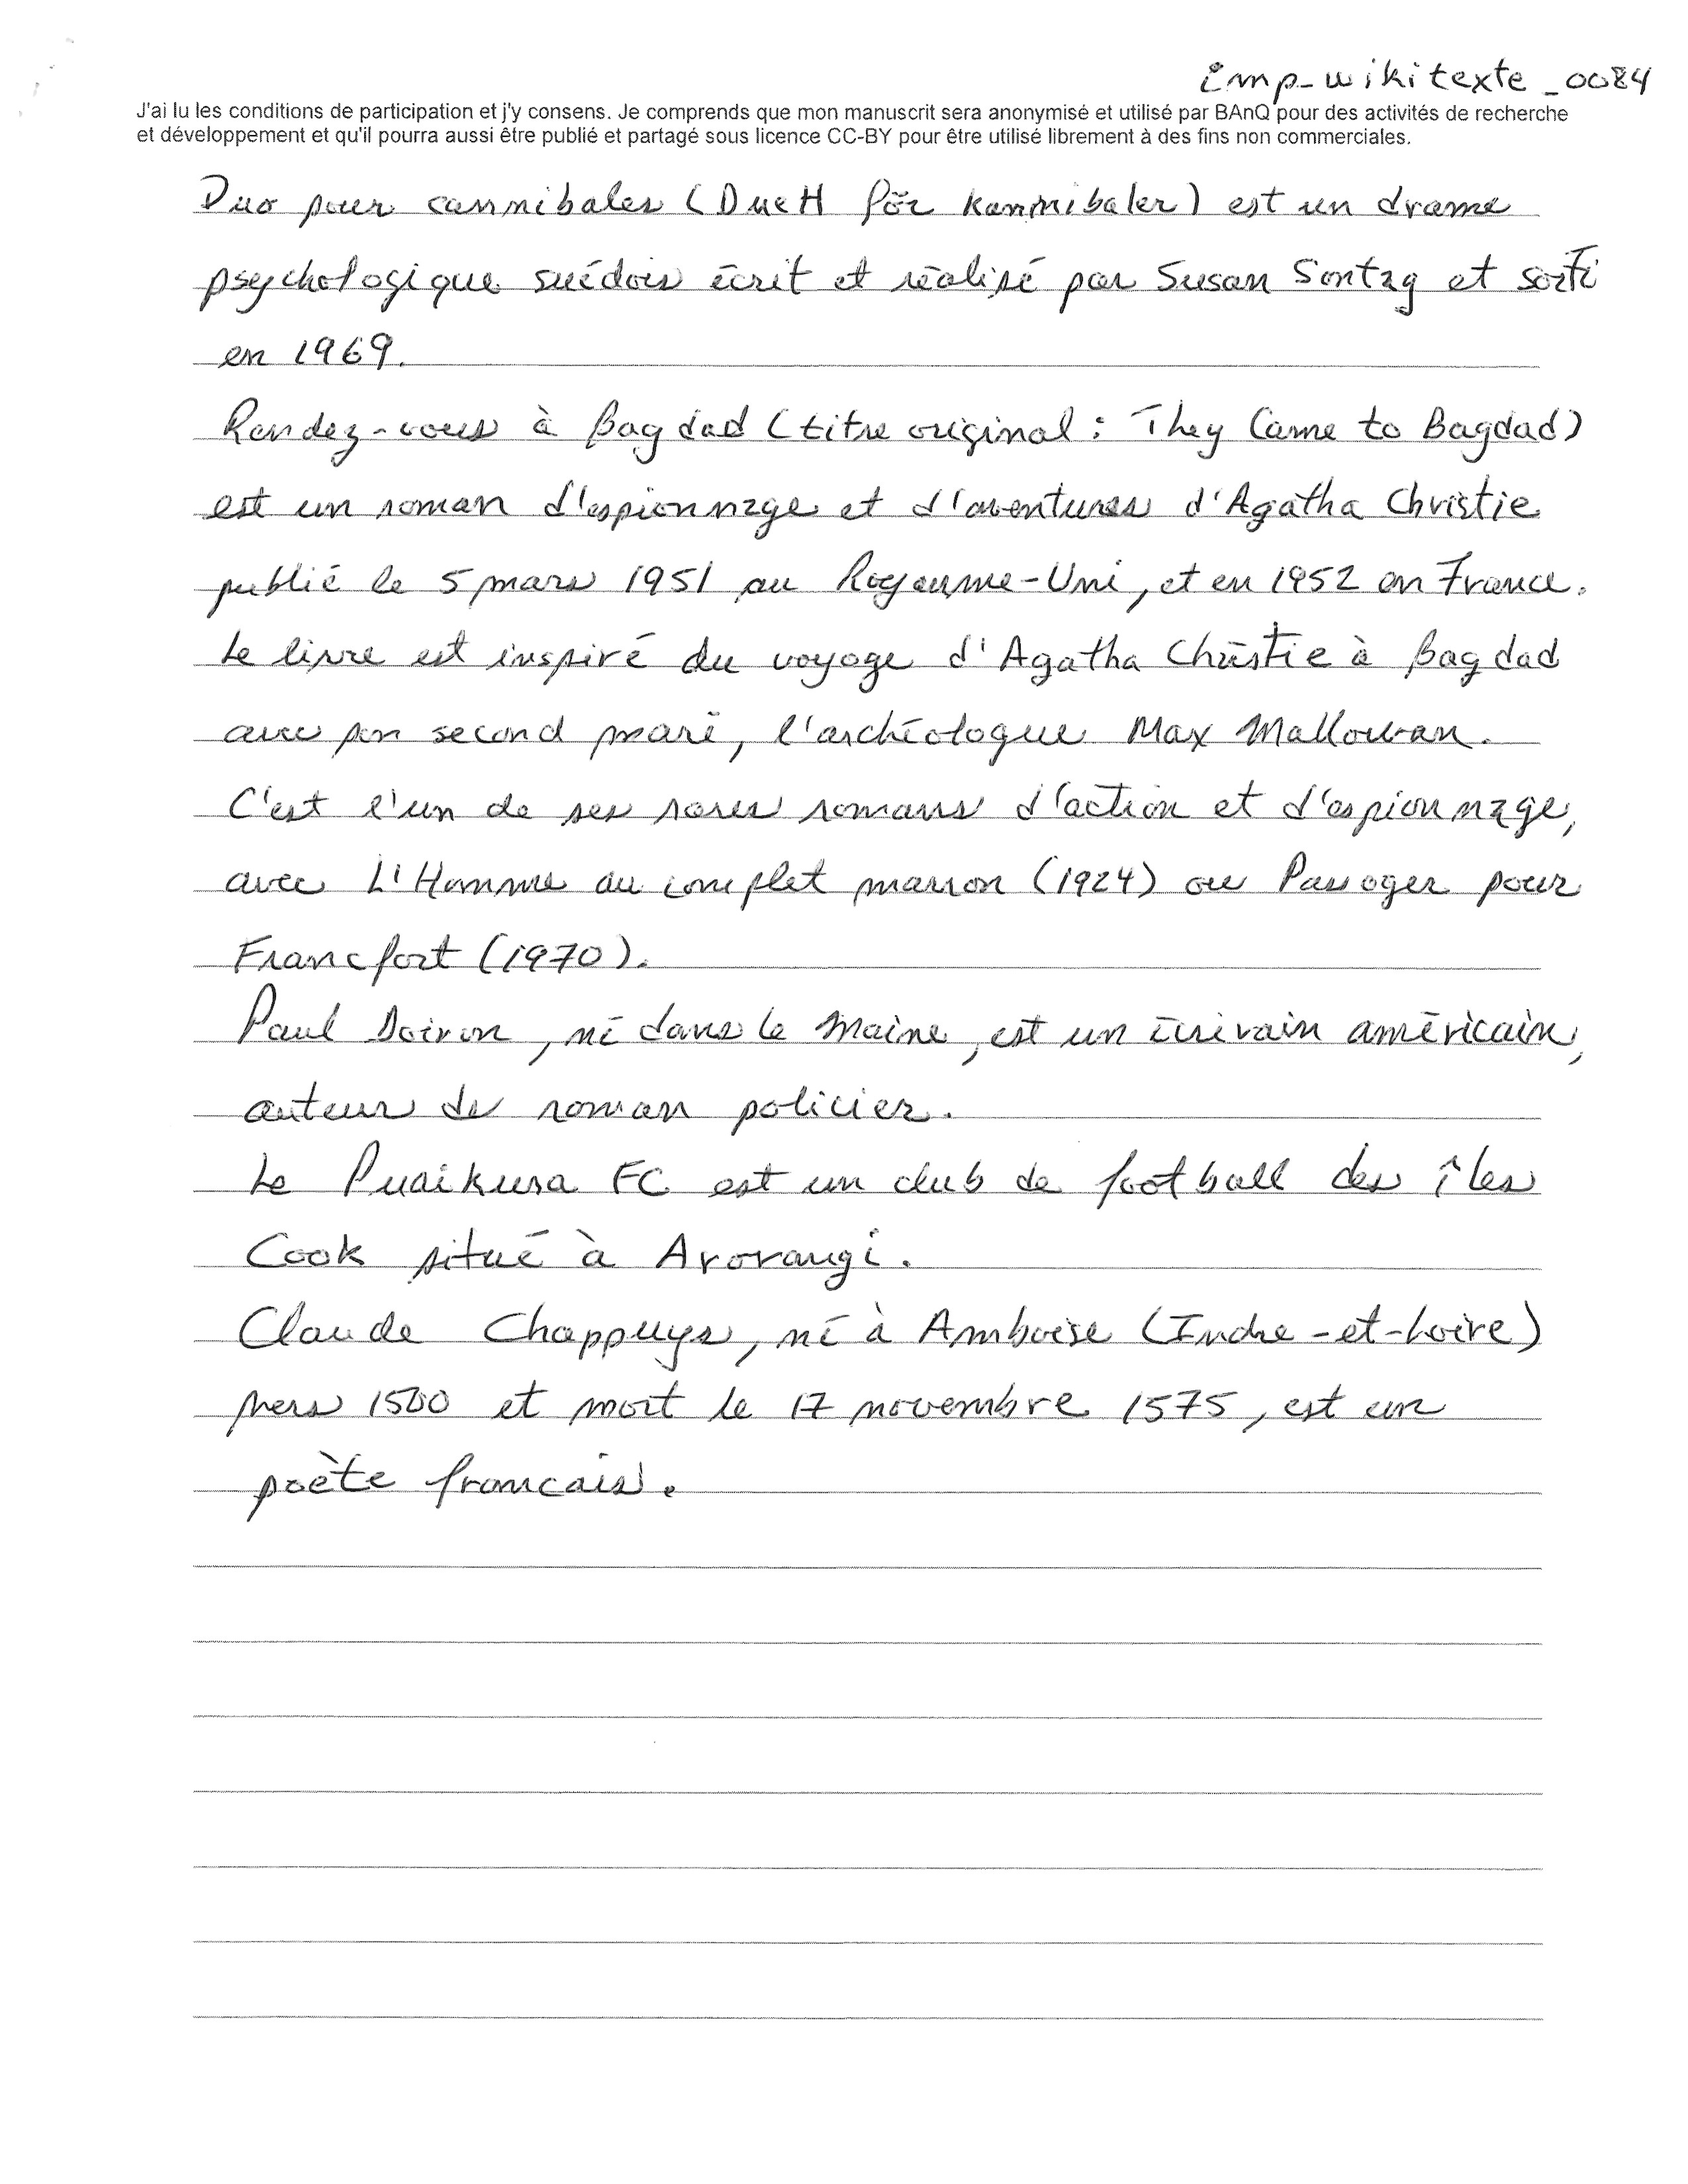 imp_wikitexte_0084
J'ai lu les conditions de participation et j'y consens. Je comprends que mon manuscrit sera anonymisé et utilisé par BAnQ pour des activités de recherche
et développement et qu'il pourra aussi être publié et partagé sous licence CC-BY pour être utilisé librement à des fins non commerciales.
Duo pour cannibales (Duett för kannibaler) est un drame
psychologique suédois écrit et réalisé par Susan Sontag et sorti
en 1969.
Rendez-vous à Bagdad (titre original : They Came to Bagdad)
est un roman d'espionnage et d'aventures d'Agatha Christie
publié le 5 mars 1951 au Royaume-Uni, et en 1952 en France.
Le livre est inspiré du voyage d'Agatha Christie à Bagdad
avec son second mari, l'archéologue Max Mallowan.
C'est l'un de ses rares romans d'action et d'espionnage,
avec L'Homme au complet marron (1924) ou Passager pour
Francfort (1970).
Paul Doiron, né dans le Maine, est un écrivain américain,
auteur de roman policier.
Le Puaikura FC est un club de football des îles
Cook situé à Arorangi.
Claude Chappuys, né à Amboise (Indre-et-Loire)
vers 1500 et mort le 17 novembre 1575, est un
poète francais.